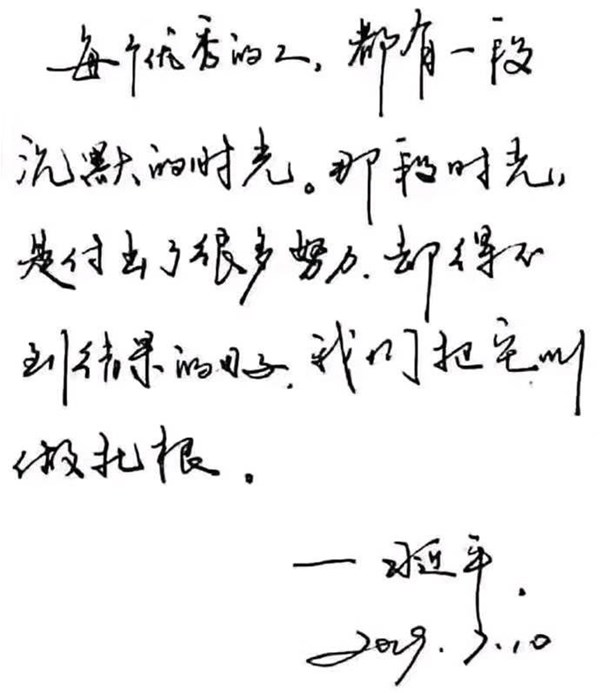 每个优秀的人，都有一段
沉默的时光。那段时光，
是付出了很多努力，却得不
到结果的日子，我们把它叫
做扎根。
—习近平.
2029.3.10